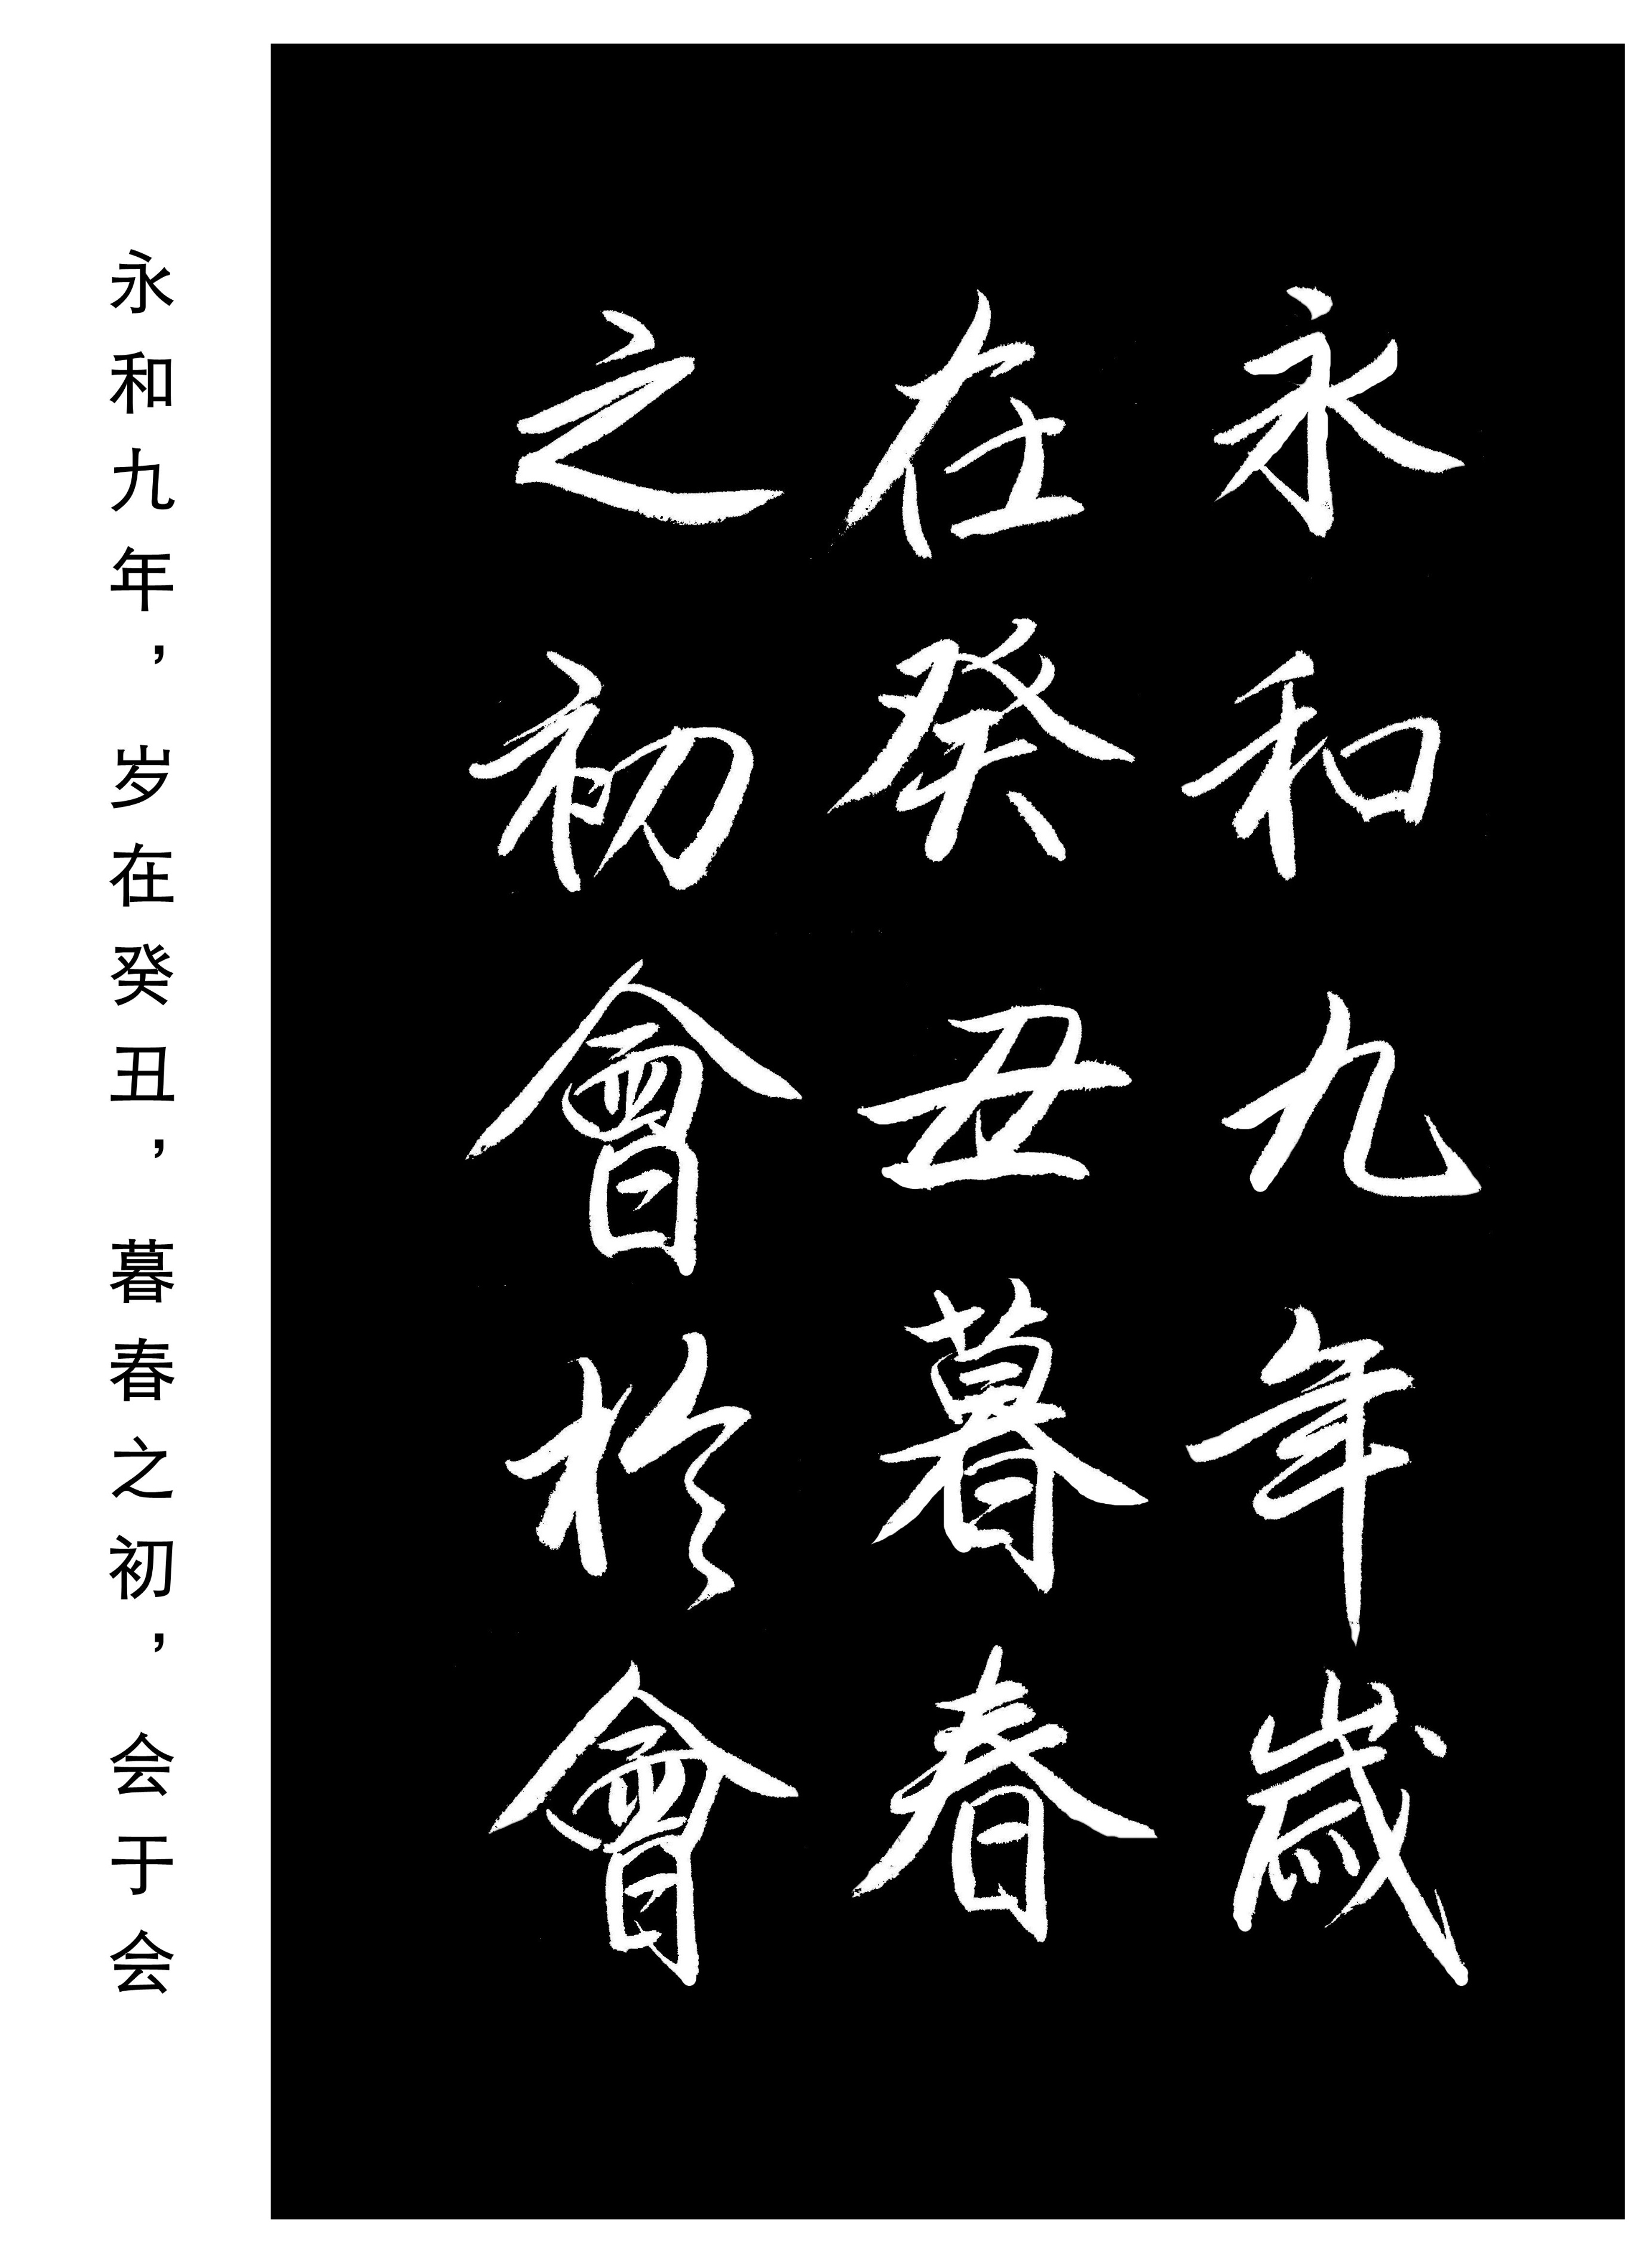 永和九年歲
在癸丑暮春
之初會於會
永和九年，岁在癸丑，暮春之初，会于会